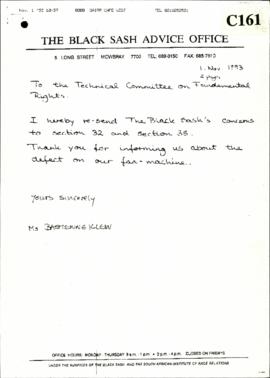 C161
THE BLACK SASH ADVICE OFFICE
5 LONG STREET MOWBRAY 7700 TEL 689-3150 FAX 685-7510
1. Nov 1993
2 pgs.
To the Technical Committee on Fundamental
Rights.
I hereby re-send The Black Sash's concerns
to section 32 and section 35.
Thank you for informing us about the
defect on our fax-machine.
YOURS SINCERELY
Ms BASTIENNE KLEIN
OFFICE HOURS: MONDAY - THURSDAY 9am - 1pm • 2pm - 4pm CLOSED ON FRIDAYS
UNDER THE AUSPICES OF THE BLACK SASH AND THE SOUTH AFRICAN INSTITUTE OF RACE RELATIONS